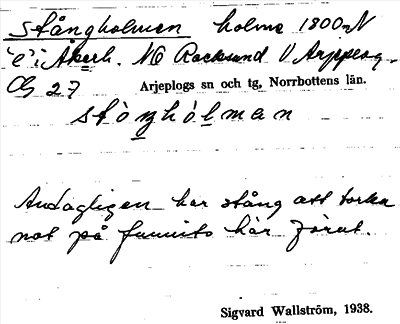 Stångholmen holme 1800 m N
"C" i Åkerh. N6 Racksund V Arjeplog.
Cb 27 Arjeplogs sn och tg, Norrbottens län.
stònghòlman
Andagligen har stång att torka
not på funnits här förut.
Sigvard Wallström, 1938.